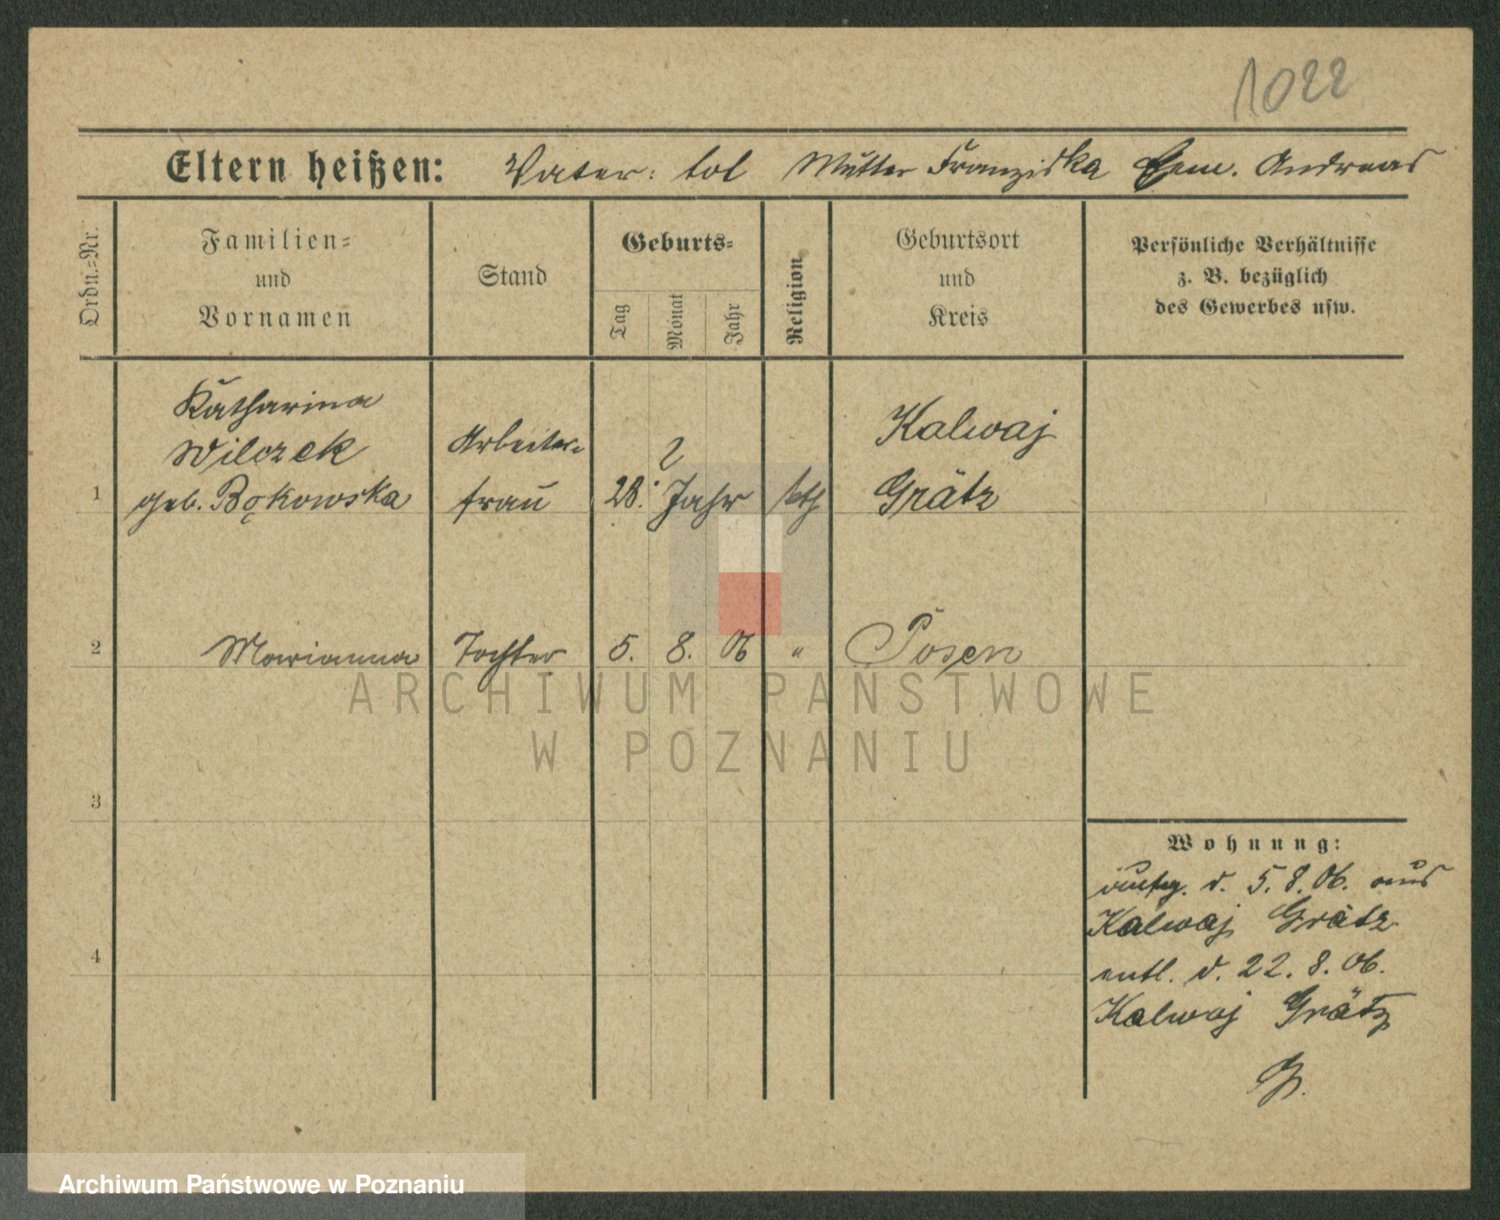 1022
Eltern heißen: Vater: tot Mutter Franziska Andreas
Ordn.-Nr.
Familien-
und
Vornamen
Stand
Geburts-
Tag
Monat
Jahr
Religion
Geburtsort
und
Kreis
Persönliche Verhältnisse
z. B. bezüglich
des Gewerbes usw.
Katharina
Wilczek
geb. Bąkowska
Arbeiter-
frau
?
28. Jahr
kth
Kalwaj
Grätz
1
2
Marianna
Tochter
5. 8. 06
"
Posen
3
4
Wohnung:
d. 5. 8. 06. aus
Kalwaj Grätz
entl. d. 22. 8. 06.
Kalwaj Grätz
ARCHIWUM PAŃSTWOWE
W POZNANIU
Archiwum Państwowe w Poznaniu